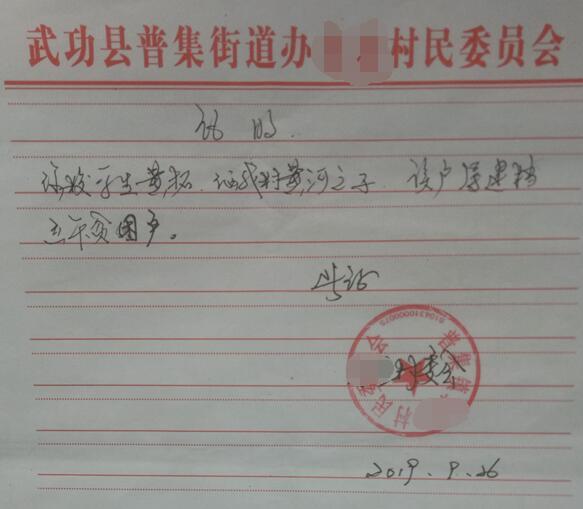 武功县普集街道办 村民委员会
证明
该校学生黄拓,系我村黄河之子,该户属建档
立卡贫困户。
此证
村委会
2019.9.26